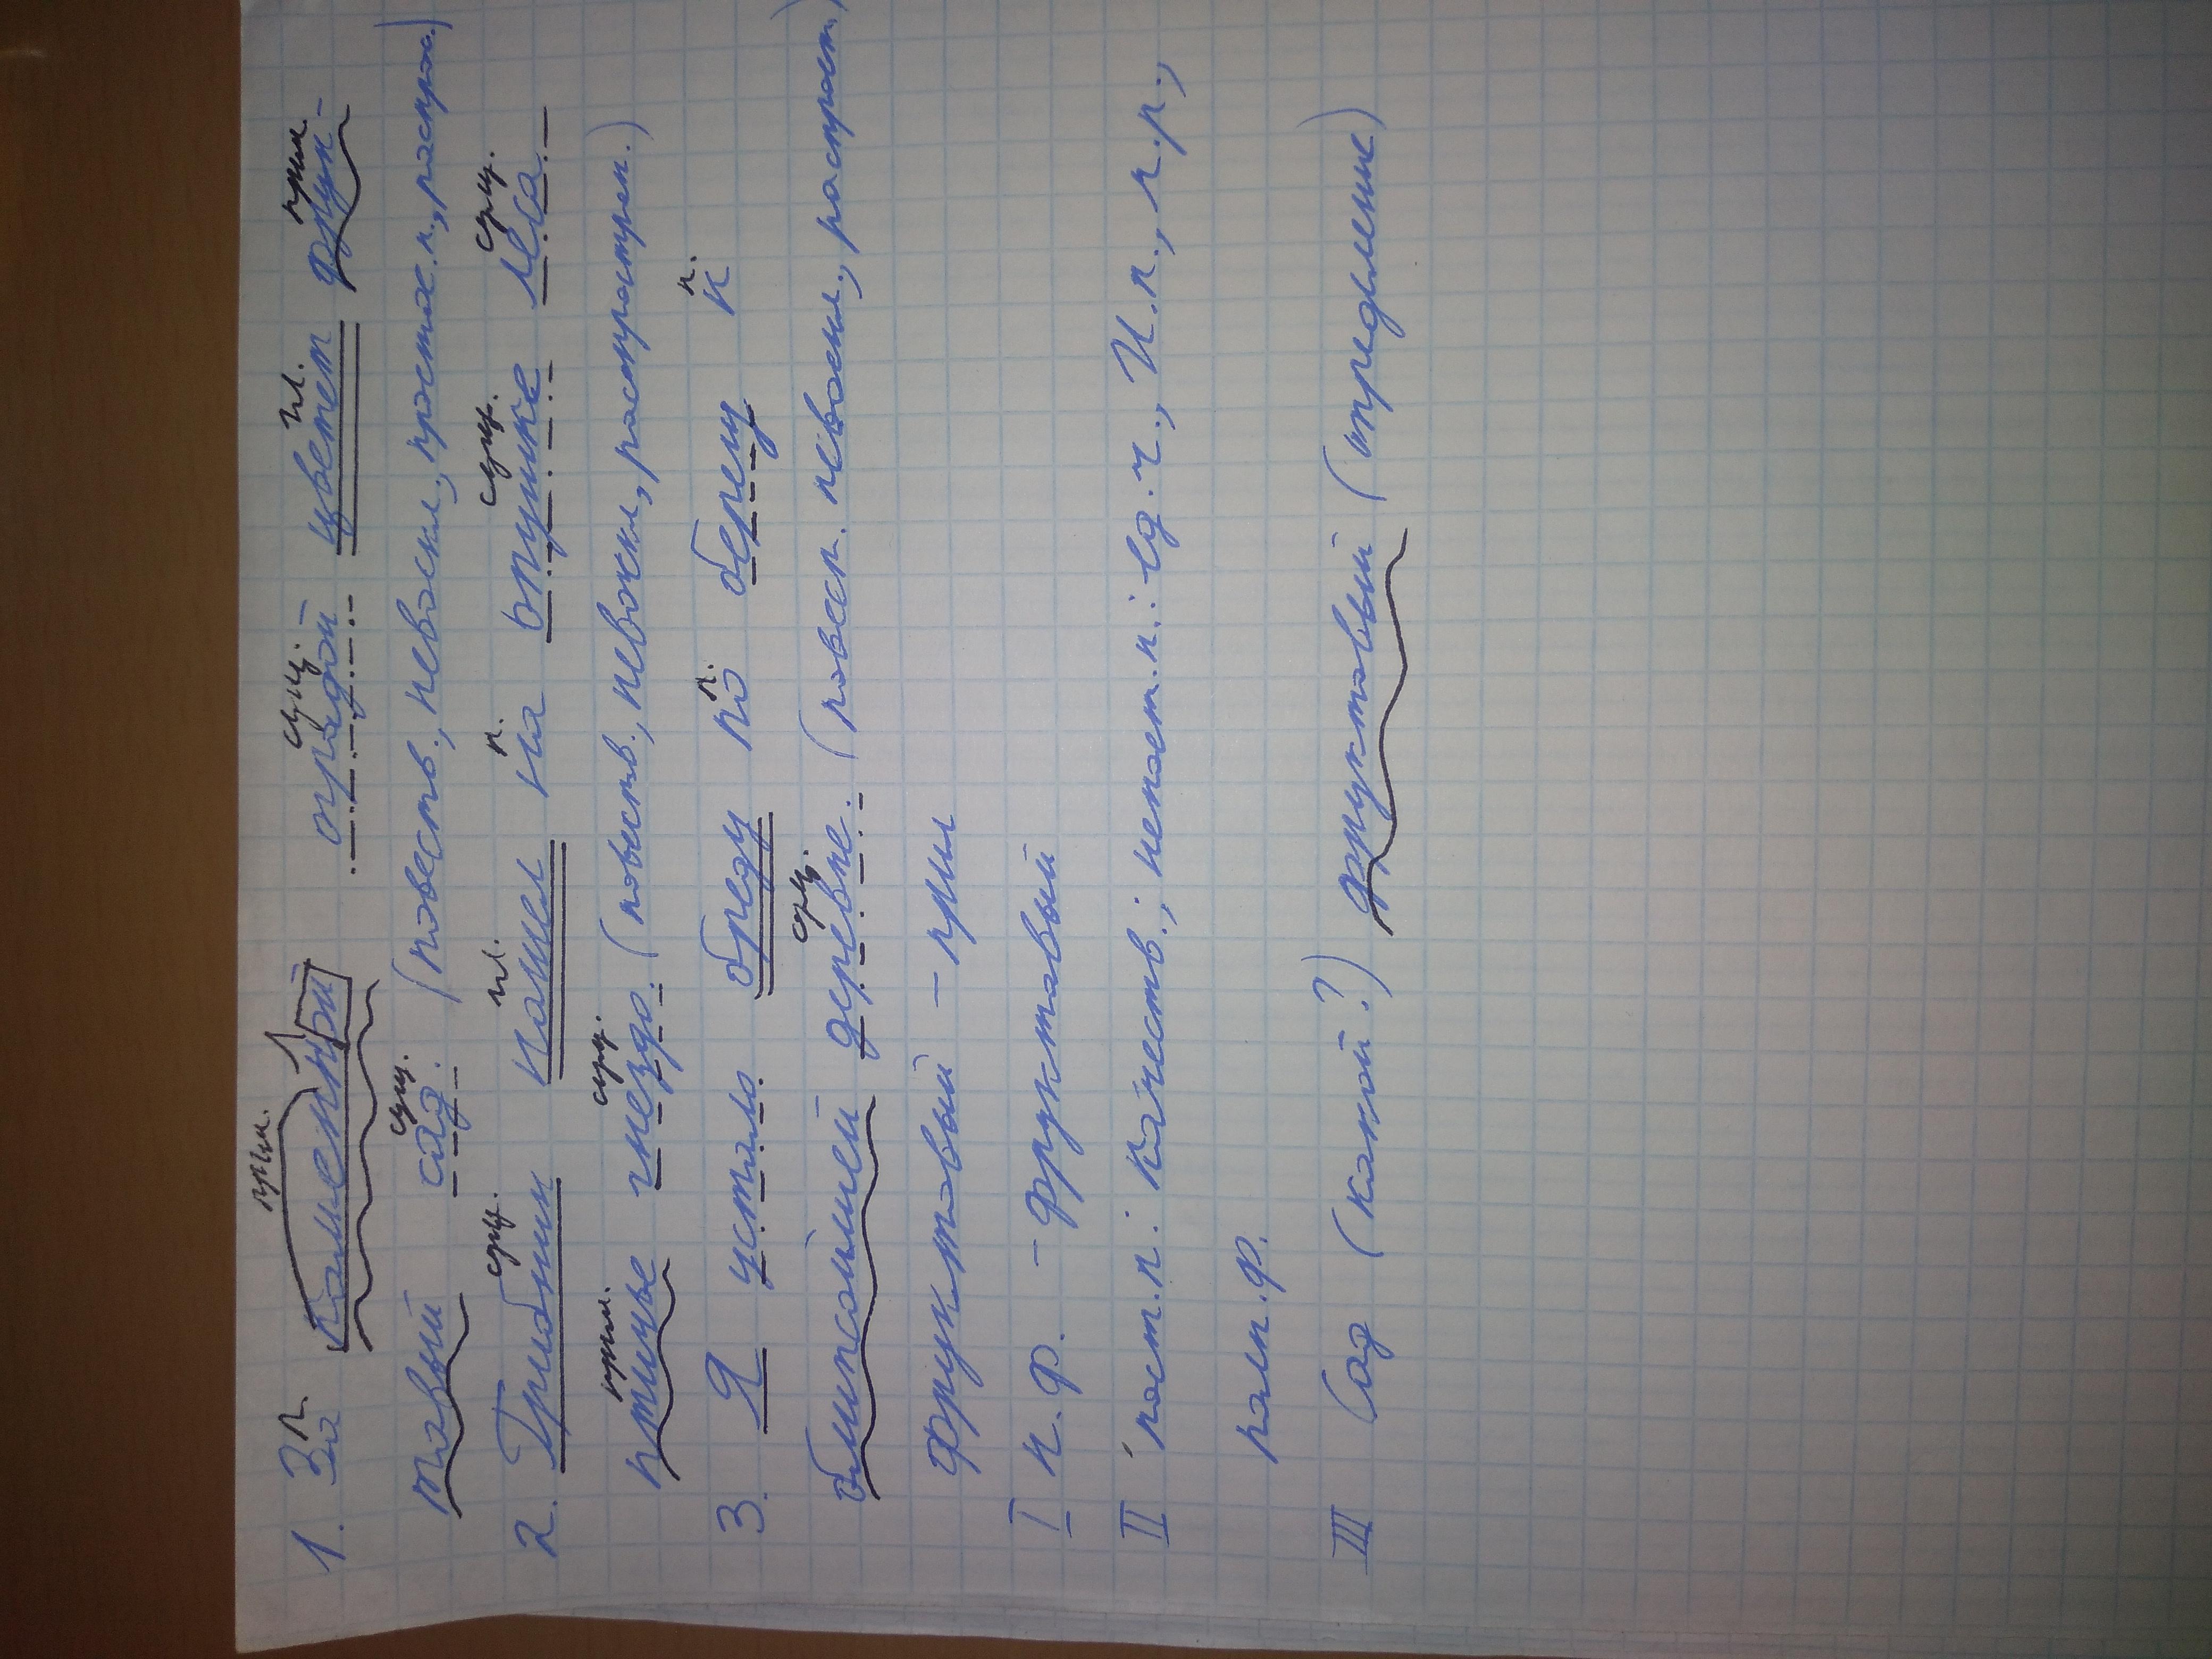 п. прил. сущ. гл. прил.
1. За каменной оградой цветет фрук-
сущ.
товый сад. (повеств., невоскл., простое.п., распро.)
сущ. гл. п. сущ. сущ.
2. Грибник нашел на опушке леса
прил. сущ.
птичье гнездо. (повеств., невоскл., распростран.)
п. п.
3. Я устало бреду по берегу к
сущ.
близсайшей деревне. (повест. невоскл., распрост.)
Фруктовый - прил
I н.ф. - фруктовый
II пост.п: качеств.; непост.п.: ед.ч., И.п., м.р.,
полн.ф.
III Сад (какой?) фруктовый (определение)